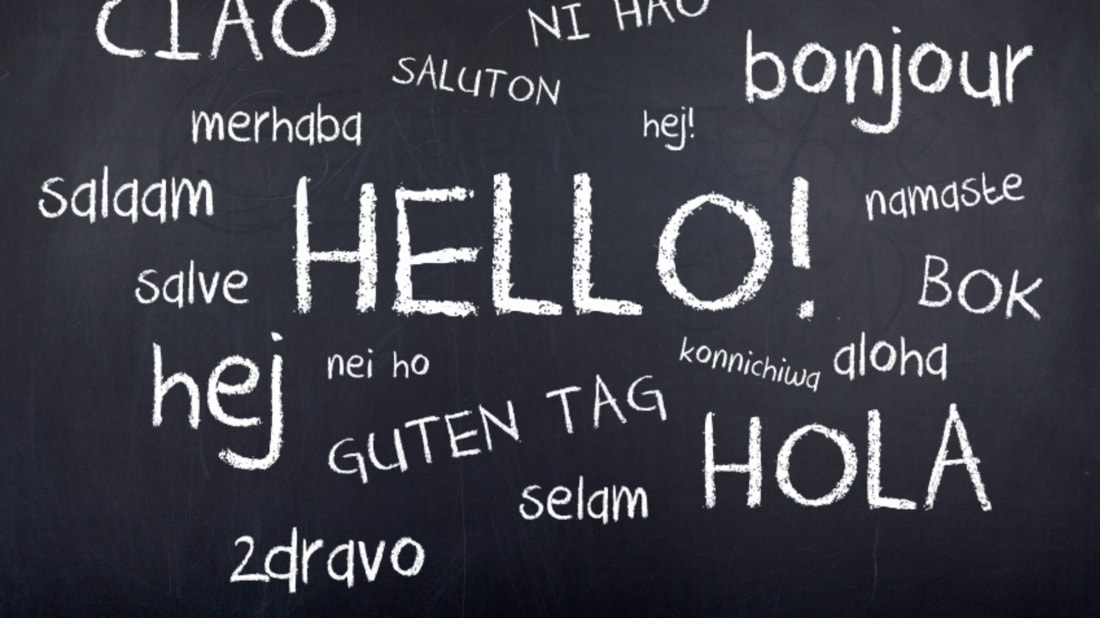 CIAO
NI HAO
SALUTON
bonjour
merhaba
hej!
salaam
HELLO!
namaste
salve
BOK
hej
nei ho
konnichiwa
aloha
GUTEN TAG
HOLA
selam
2dravo